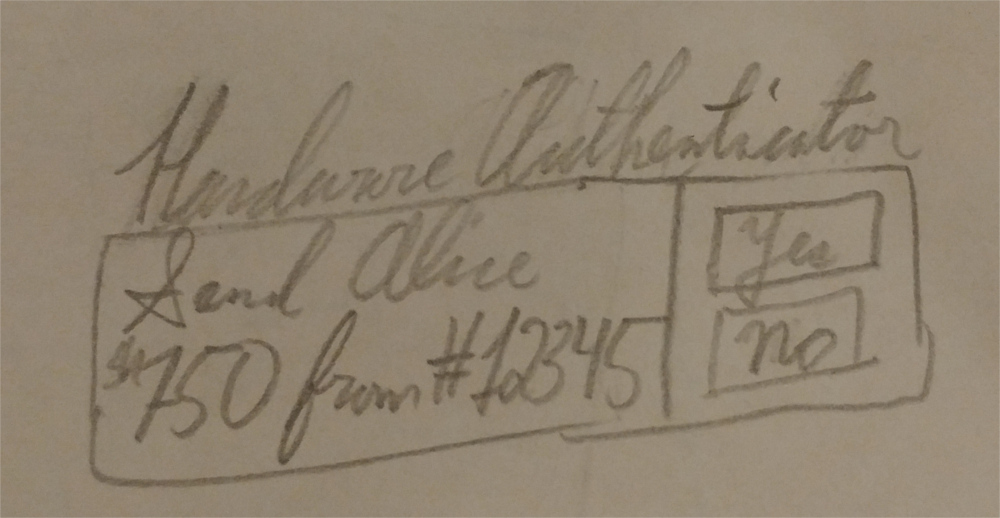 Hardware Authenticator
Send Alice
$150 from #12345
Yes
No